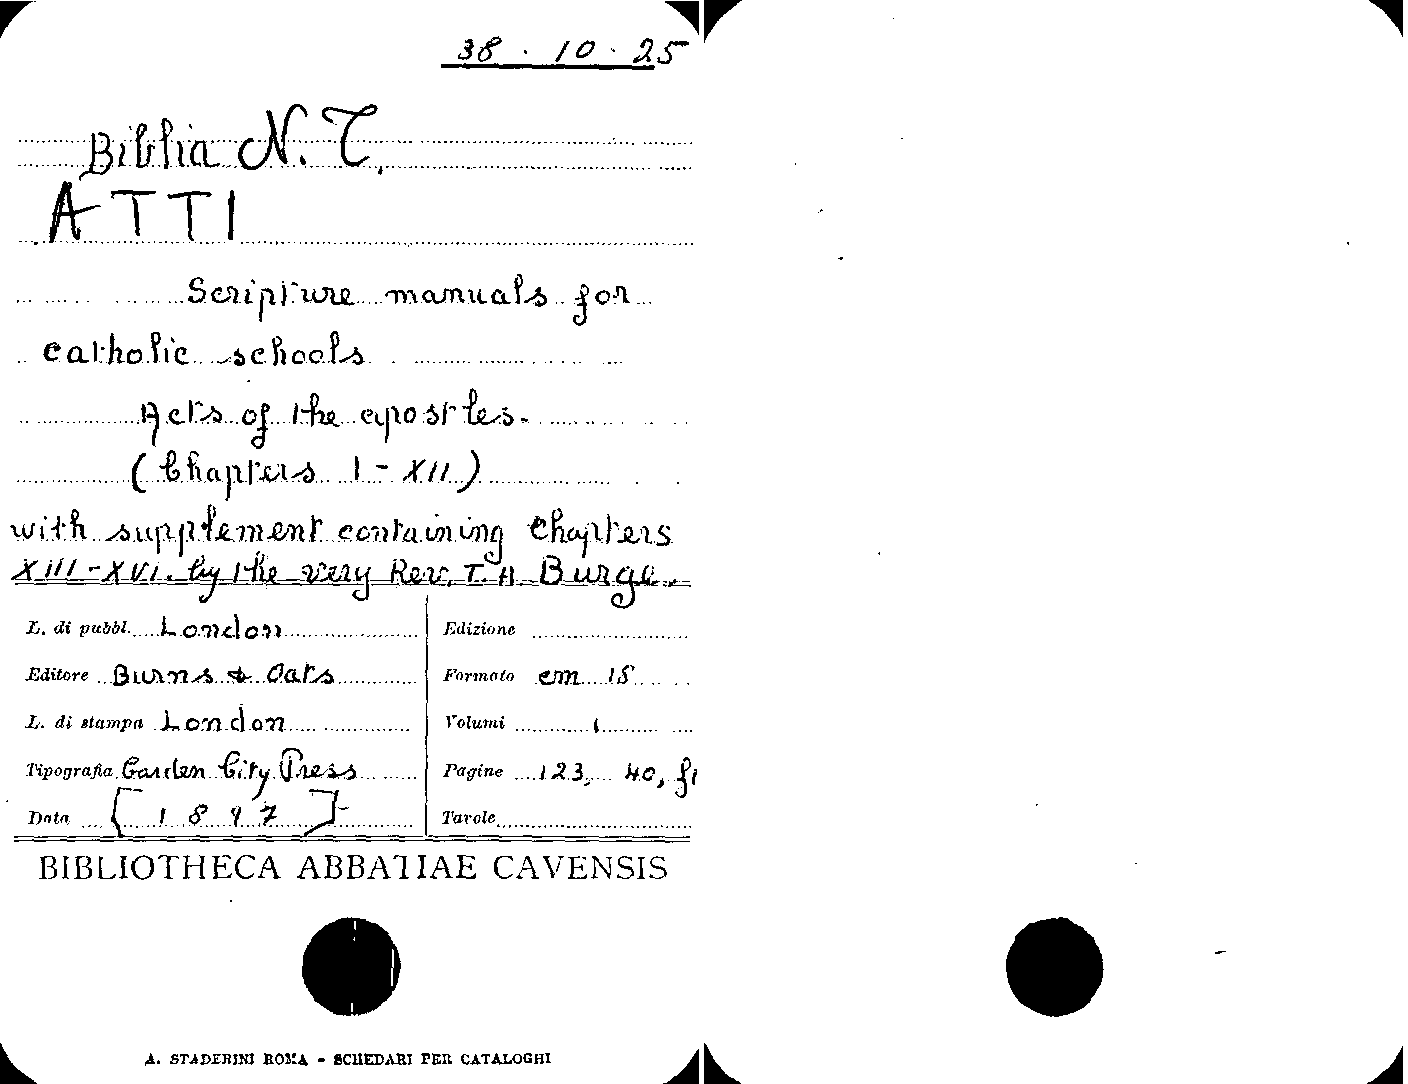 38 . 10 . 25
Biblia N.T.
ATTI
Scripture manuals for
catholic schools
Acts of the apostles.
(Chapters I - XII)
with supplement containing Chapters
XIII - XVI. by the very Rev. T. A. Burge.
L. di pubbl. London
Edizione
Editore Burns & Oats
Formato cm 18
L. di stampa London
Volumi 1
Tipografia Garden City Press
Pagine 123, 40, fi
Data [1897]
Tavole
BIBLIOTHECA ABBATIAE CAVENSIS
A. STADERINI ROMA - SCHEDARI PER CATALOGHI